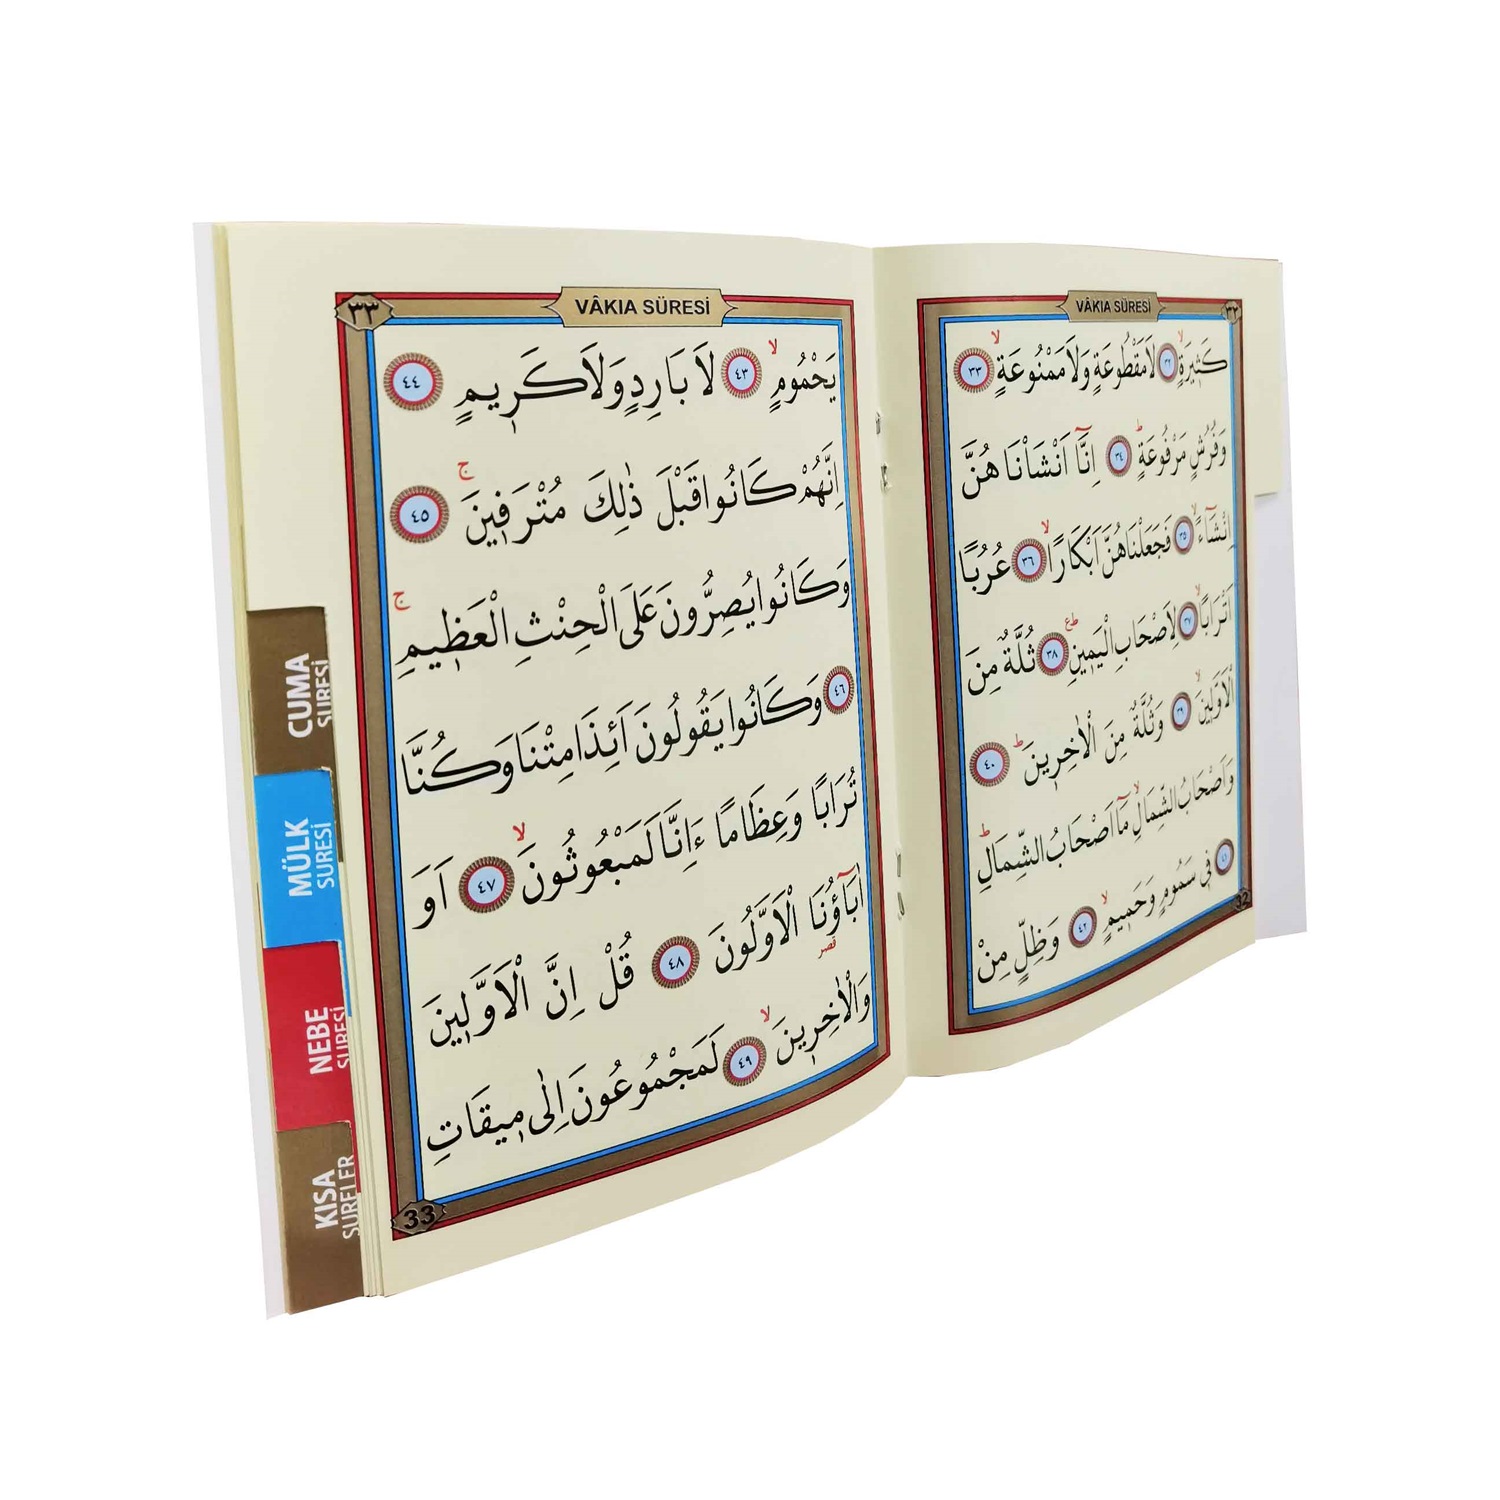 VÂKIA SÛRESİ
كَثِيرَةٍۙ ﴿٣٢﴾ لَا مَقْطُوعَةٍ وَلَا مَمْنُوعَةٍۙ ﴿٣٣﴾
وَفُرُشٍ مَرْفُوعَةٍۜ ﴿٣٤﴾ اِنَّٓا اَنْشَاْنَا هُنَّ
اِنْشَٓاءًۙ ﴿٣٥﴾ فَجَعَلْنَا هُنَّ اَبْكَارًاۙ ﴿٣٦﴾ عُرُبًا
اَتْرَابًاۙ ﴿٣٧﴾ لِاَصْحَابِ الْيَمِينِۜ ﴿٣٨﴾ ثُلَّةٌ مِنَ
الْاَوَّلِينَۙ ﴿٣٩﴾ وَثُلَّةٌ مِنَ الْاٰخِرِينَۜ ﴿٤٠﴾
وَاَصْحَابُ الشِّمَالِۙ مَٓا اَصْحَابُ الشِّمَالِۜ
﴿٤١﴾ فِي سَمُومٍ وَحَمِيمٍۙ ﴿٤٢﴾ وَظِلٍّ مِنْ
32
٣٣
VÂKIA SÛRESİ
يَحْمُومٍۙ ﴿٤٣﴾ لَا بَارِدٍ وَلَا كَرِيمٍ ﴿٤٤﴾
اِنَّهُمْ كَانُوا قَبْلَ ذٰلِكَ مُتْرَفِينَۚ ﴿٤٥﴾
وَكَانُوا يُصِرُّونَ عَلَى الْحِنْثِ الْعَظِيمِۚ
﴿٤٦﴾ وَكَانُوا يَقُولُونَ اَئِذَا مِتْنَا وَكُنَّا
تُرَابًا وَعِظَامًا ءَاِنَّا لَمَبْعُوثُونَۙ ﴿٤٧﴾ اَوَ
اٰبَٓاؤُنَا الْاَوَّلُونَ ﴿٤٨﴾ قُلْ اِنَّ الْاَوَّلِينَ
قصر
وَالْاٰخِرِينَۙ ﴿٤٩﴾ لَمَجْمُوعُونَ اِلٰى مِيقَاتِ
33
CUMA
SURESİ
MÜLK
SURESİ
NEBE
SURESİ
KISA
SURELER